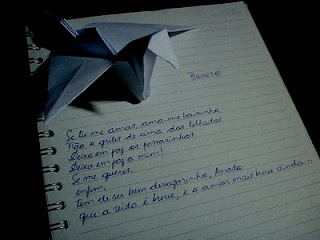 Bilhete
Se tu me amas, ama-me baixinho
Não o grites de cima dos telhados
Deixa em paz os passarinhos
Deixa em paz a mim!
Se me queres,
enfim,
tem de ser bem devagarinho, Amada,
que a vida é breve, e o amor mais breve ainda...